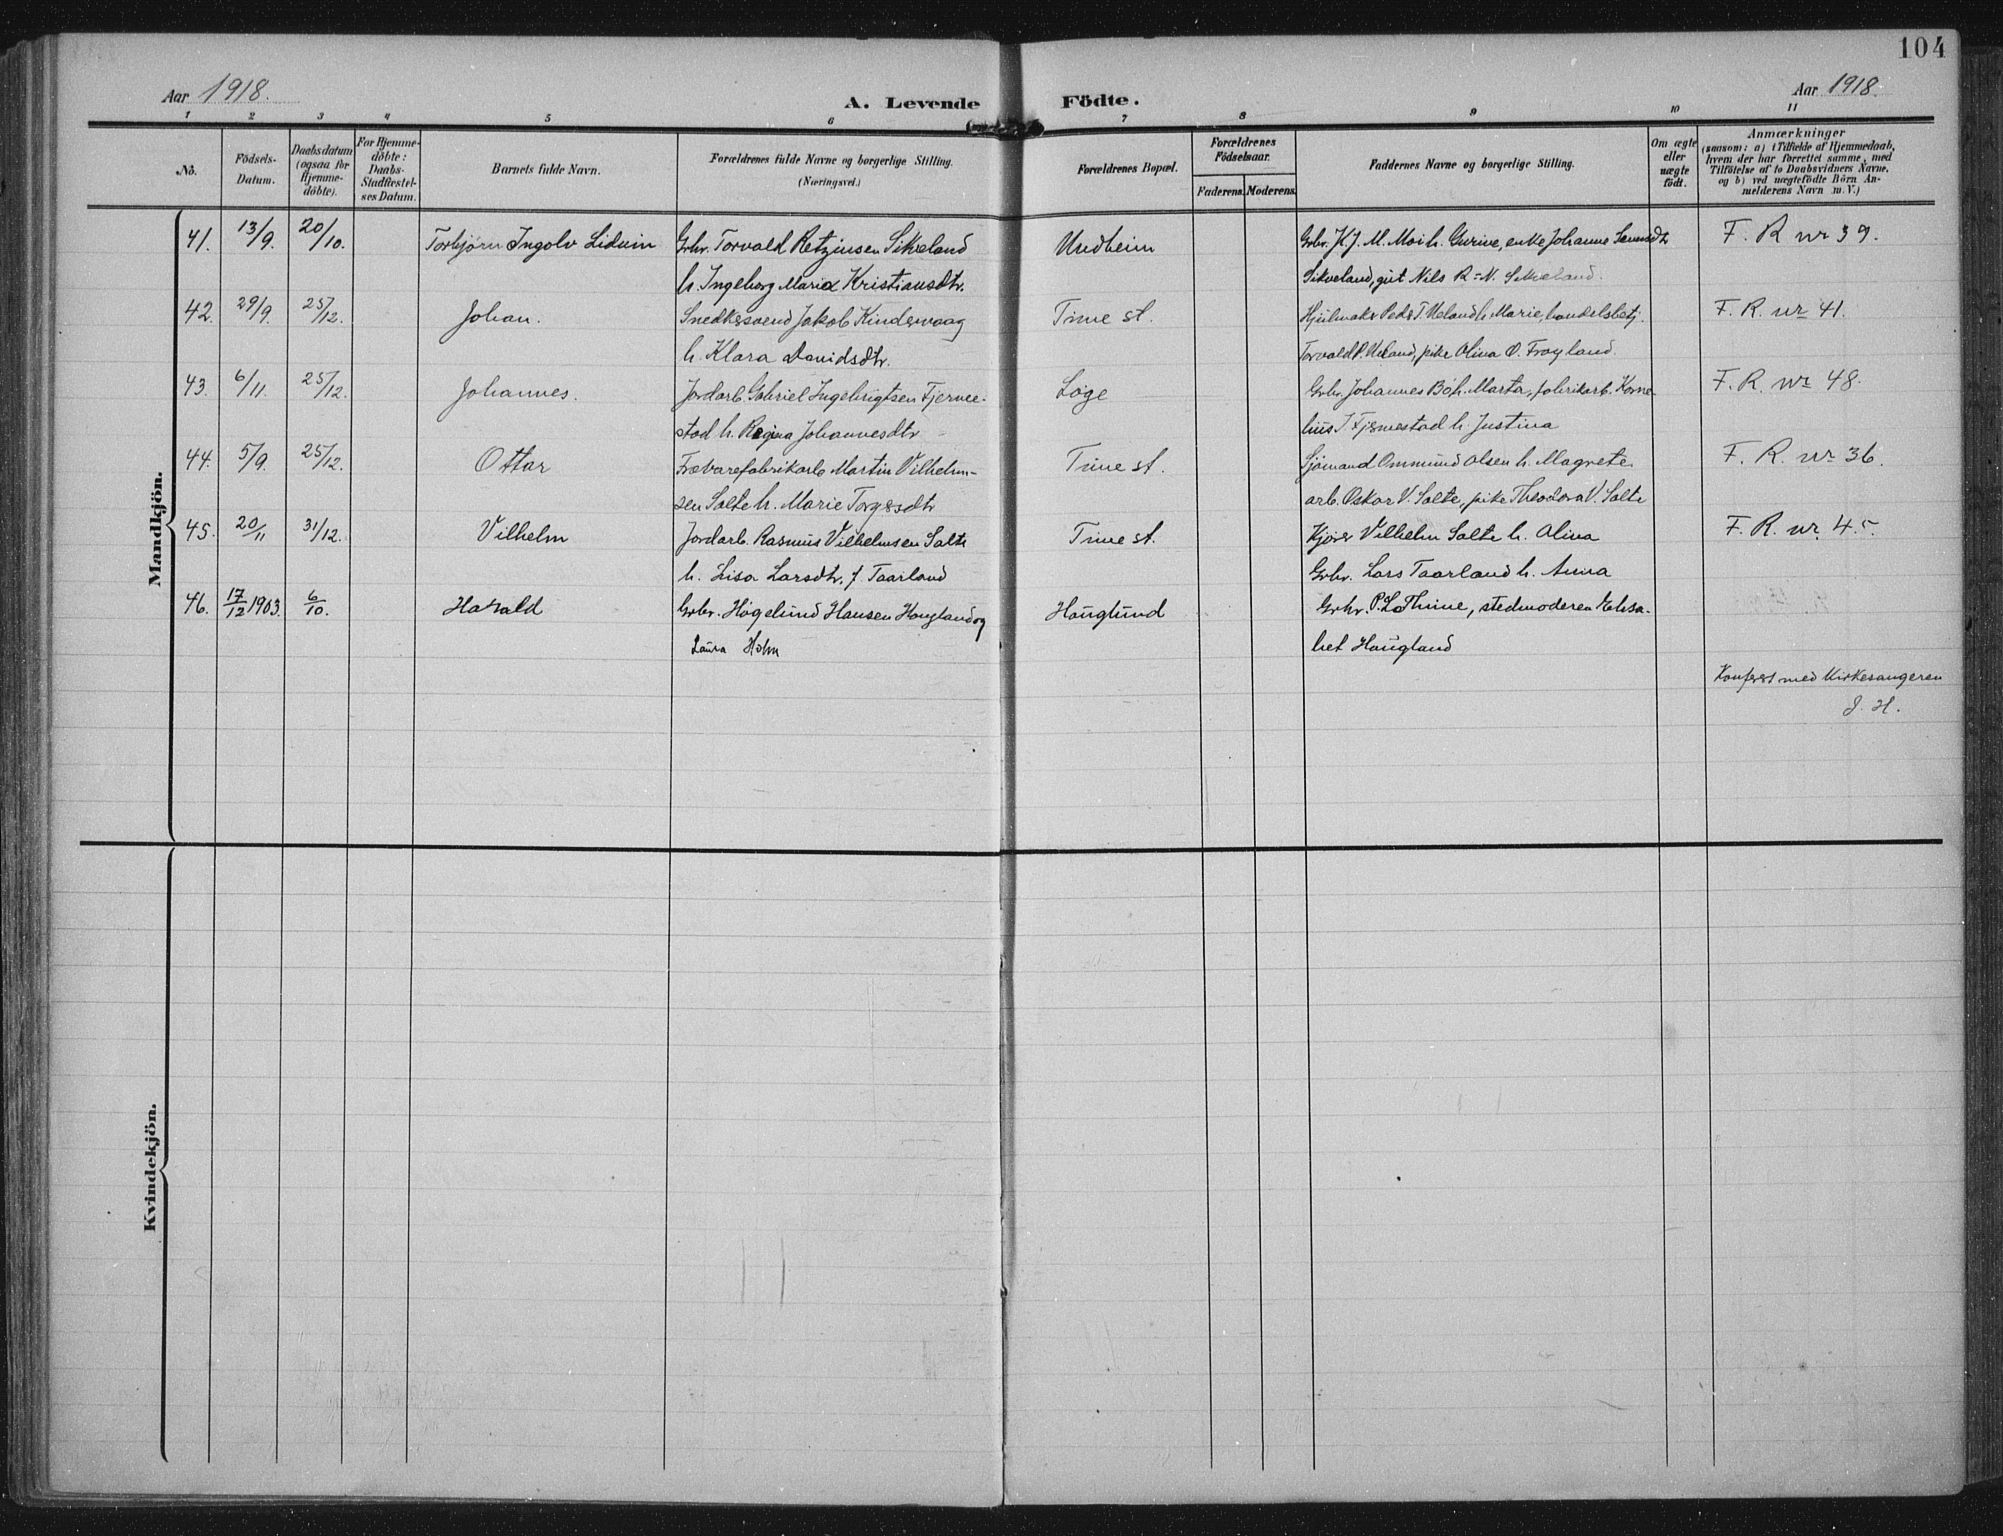 104
Aar 1918.
A. Levende Födte.
Aar 1918.
1 2 3 4 5 6 7 8 9 10 11
No.
Födsels-Datum.
Daabsdatum (ogsaa for Hjemme-döbte).
For Hjemme-döbte: Daabs-Stadfæstel-ses Datum.
Barnets fulde Navn.
Forældrenes fulde Navne og borgerlige Stilling.
(Næringsvei.)
Forældrenes Bopæl.
Forældrenes Födselsaar.
Faderens. Moderens.
Faddernes Navne og borgerlige Stilling.
Om ægte eller uægte födt.
Anmærkninger
(saasom: a) i Tilfælde af Hjemmedaab,
hvem der har forrettet samme, med
Tilföielse af to Daabsvidners Navne,
og b) ved uægtefödte Börn An-
melderens Navn m. V.)
Mandkjön.
41. 13/9. 20/10. Torbjörn Ingolv Liduin Grbr. Torvald Retziusen Sikveland Undheim Grbr. K. J. M. Moi h. Gurine, enke Johanne
h. Ingeborg Maria Kristiansdtr. Sikveland, gut Nils R. N. Sikveland.
F. R. nr 39.
42. 29/9. 25/12. Johan. Snedkersvend Jakob Kindervaag Time st. Hjulmaker Peder T. Veland h. Marie, handelsbetj.
h. Klara Davidsdtr. Torvald P. Veland, pike Olina O. Frøyland.
F. R. nr 41.
43. 6/11. 25/12. Johannes. Jordarb. Gabriel Ingebrigtsen Fjerme- Løge Grbr. Johannes Bö h. Marta, fabrikarb. Korne-
stad h. Regina Johannesdtr lius I. Fjermestad h. Justina
F. R. nr 48.
44. 5/9. 25/12. Ottar Trævarefabrikarb Martin Vilhelm- Time st. Sjömand Ommund Olsen h. Magrete
sen Salte h. Marie Torgersdtr arb. Oskar V. Salte, pike Theodora V. Salte
F. R. nr 36.
45. 20/11 31/12. Vilhelm Jordarb. Rasmus Vilhelmsen Salte Time st. Kjörer Vilhelm Salte h. Olina
h. Lisa Larsdtr. f. Taarland Grbr. Lars Taarland h. Anna
F. R. nr. 45.
46. 17/12 1903. 6/10. Harald Grbr. Högelund Hansen Hougland og Houglund Grbr. P. L. Thime, stedmoderen Elisa-
Laura Holm bet Hougland
Konferert med Kirkesangeren
J. H.
Kvindekjön.